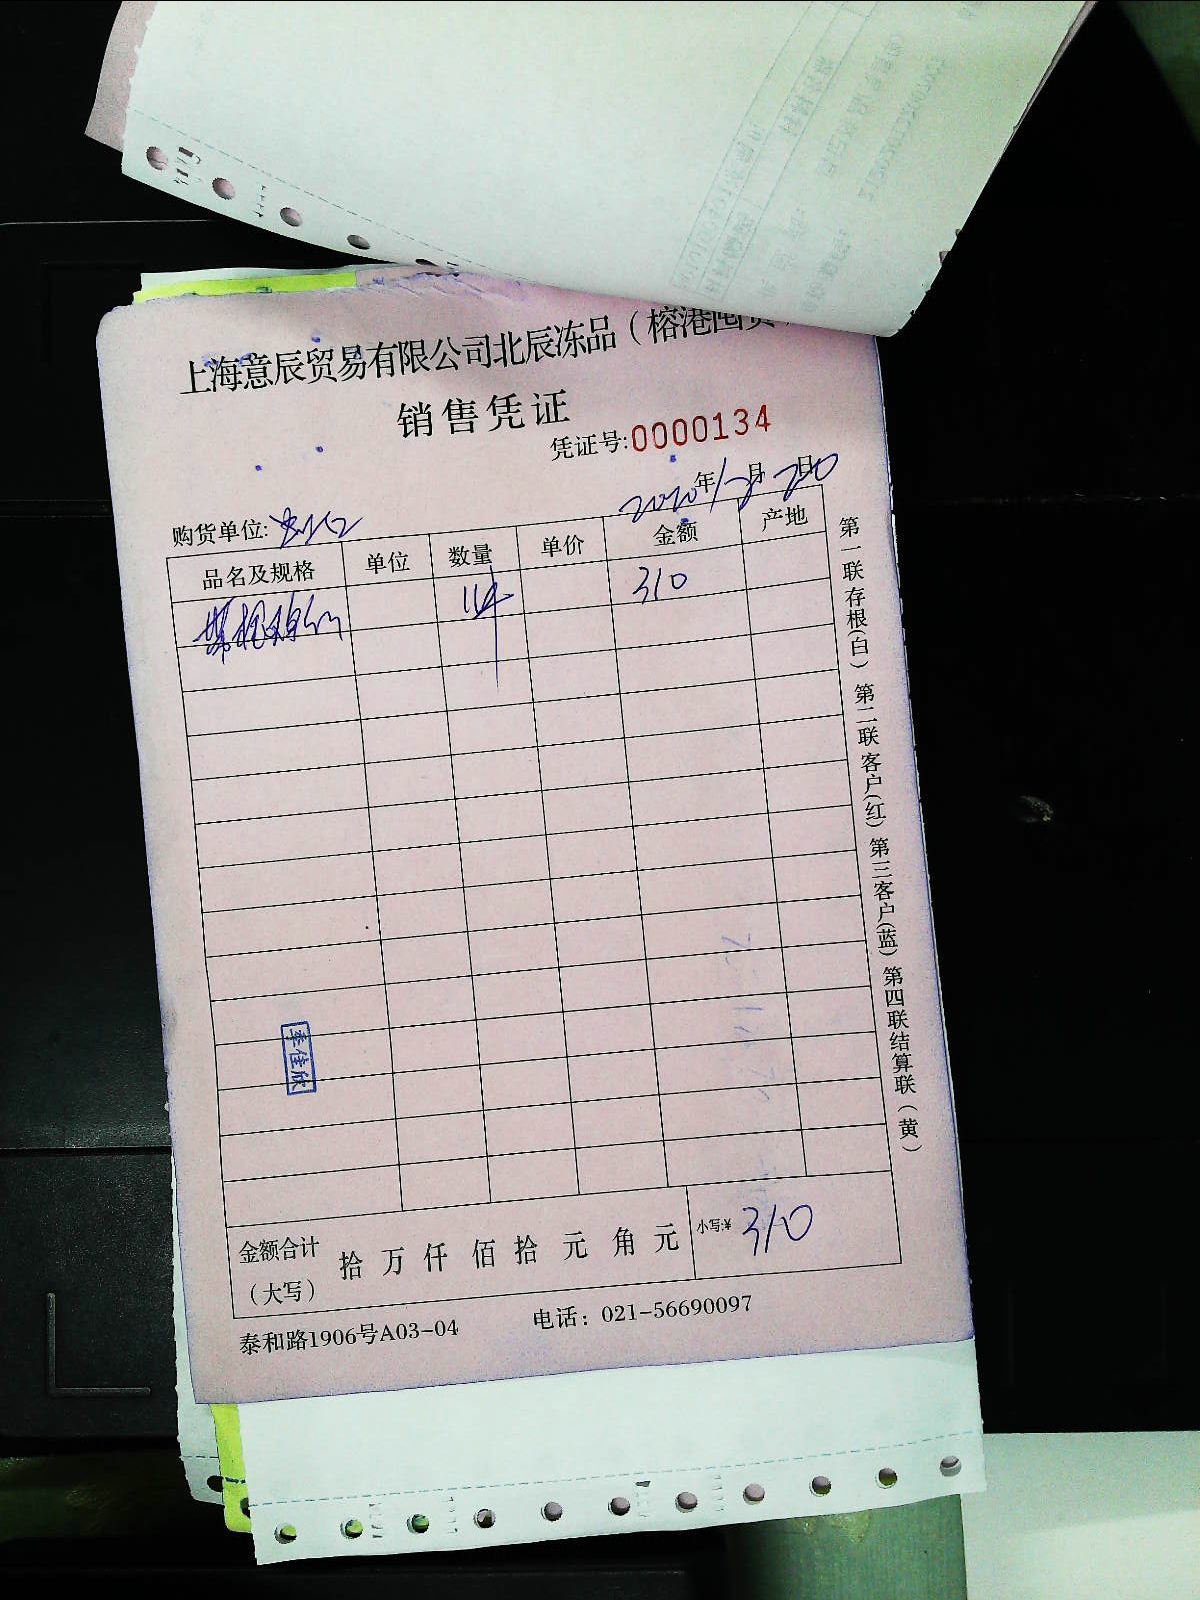 上海意辰贸易有限公司北辰冻品（榕港囤货
销售凭证
凭证号:0000134
2020年 月20日
购货单位:
品名及规格 单位 数量 单价 金额 产地
114 310
李佳欣
金额合计（大写） 拾 万 仟 佰 拾 元 角 元 小写:¥ 310
泰和路1906号A03-04 电话：021-56690097
第一联存根(白) 第二联客户(红) 第三客户(蓝) 第四联结算联(黄)